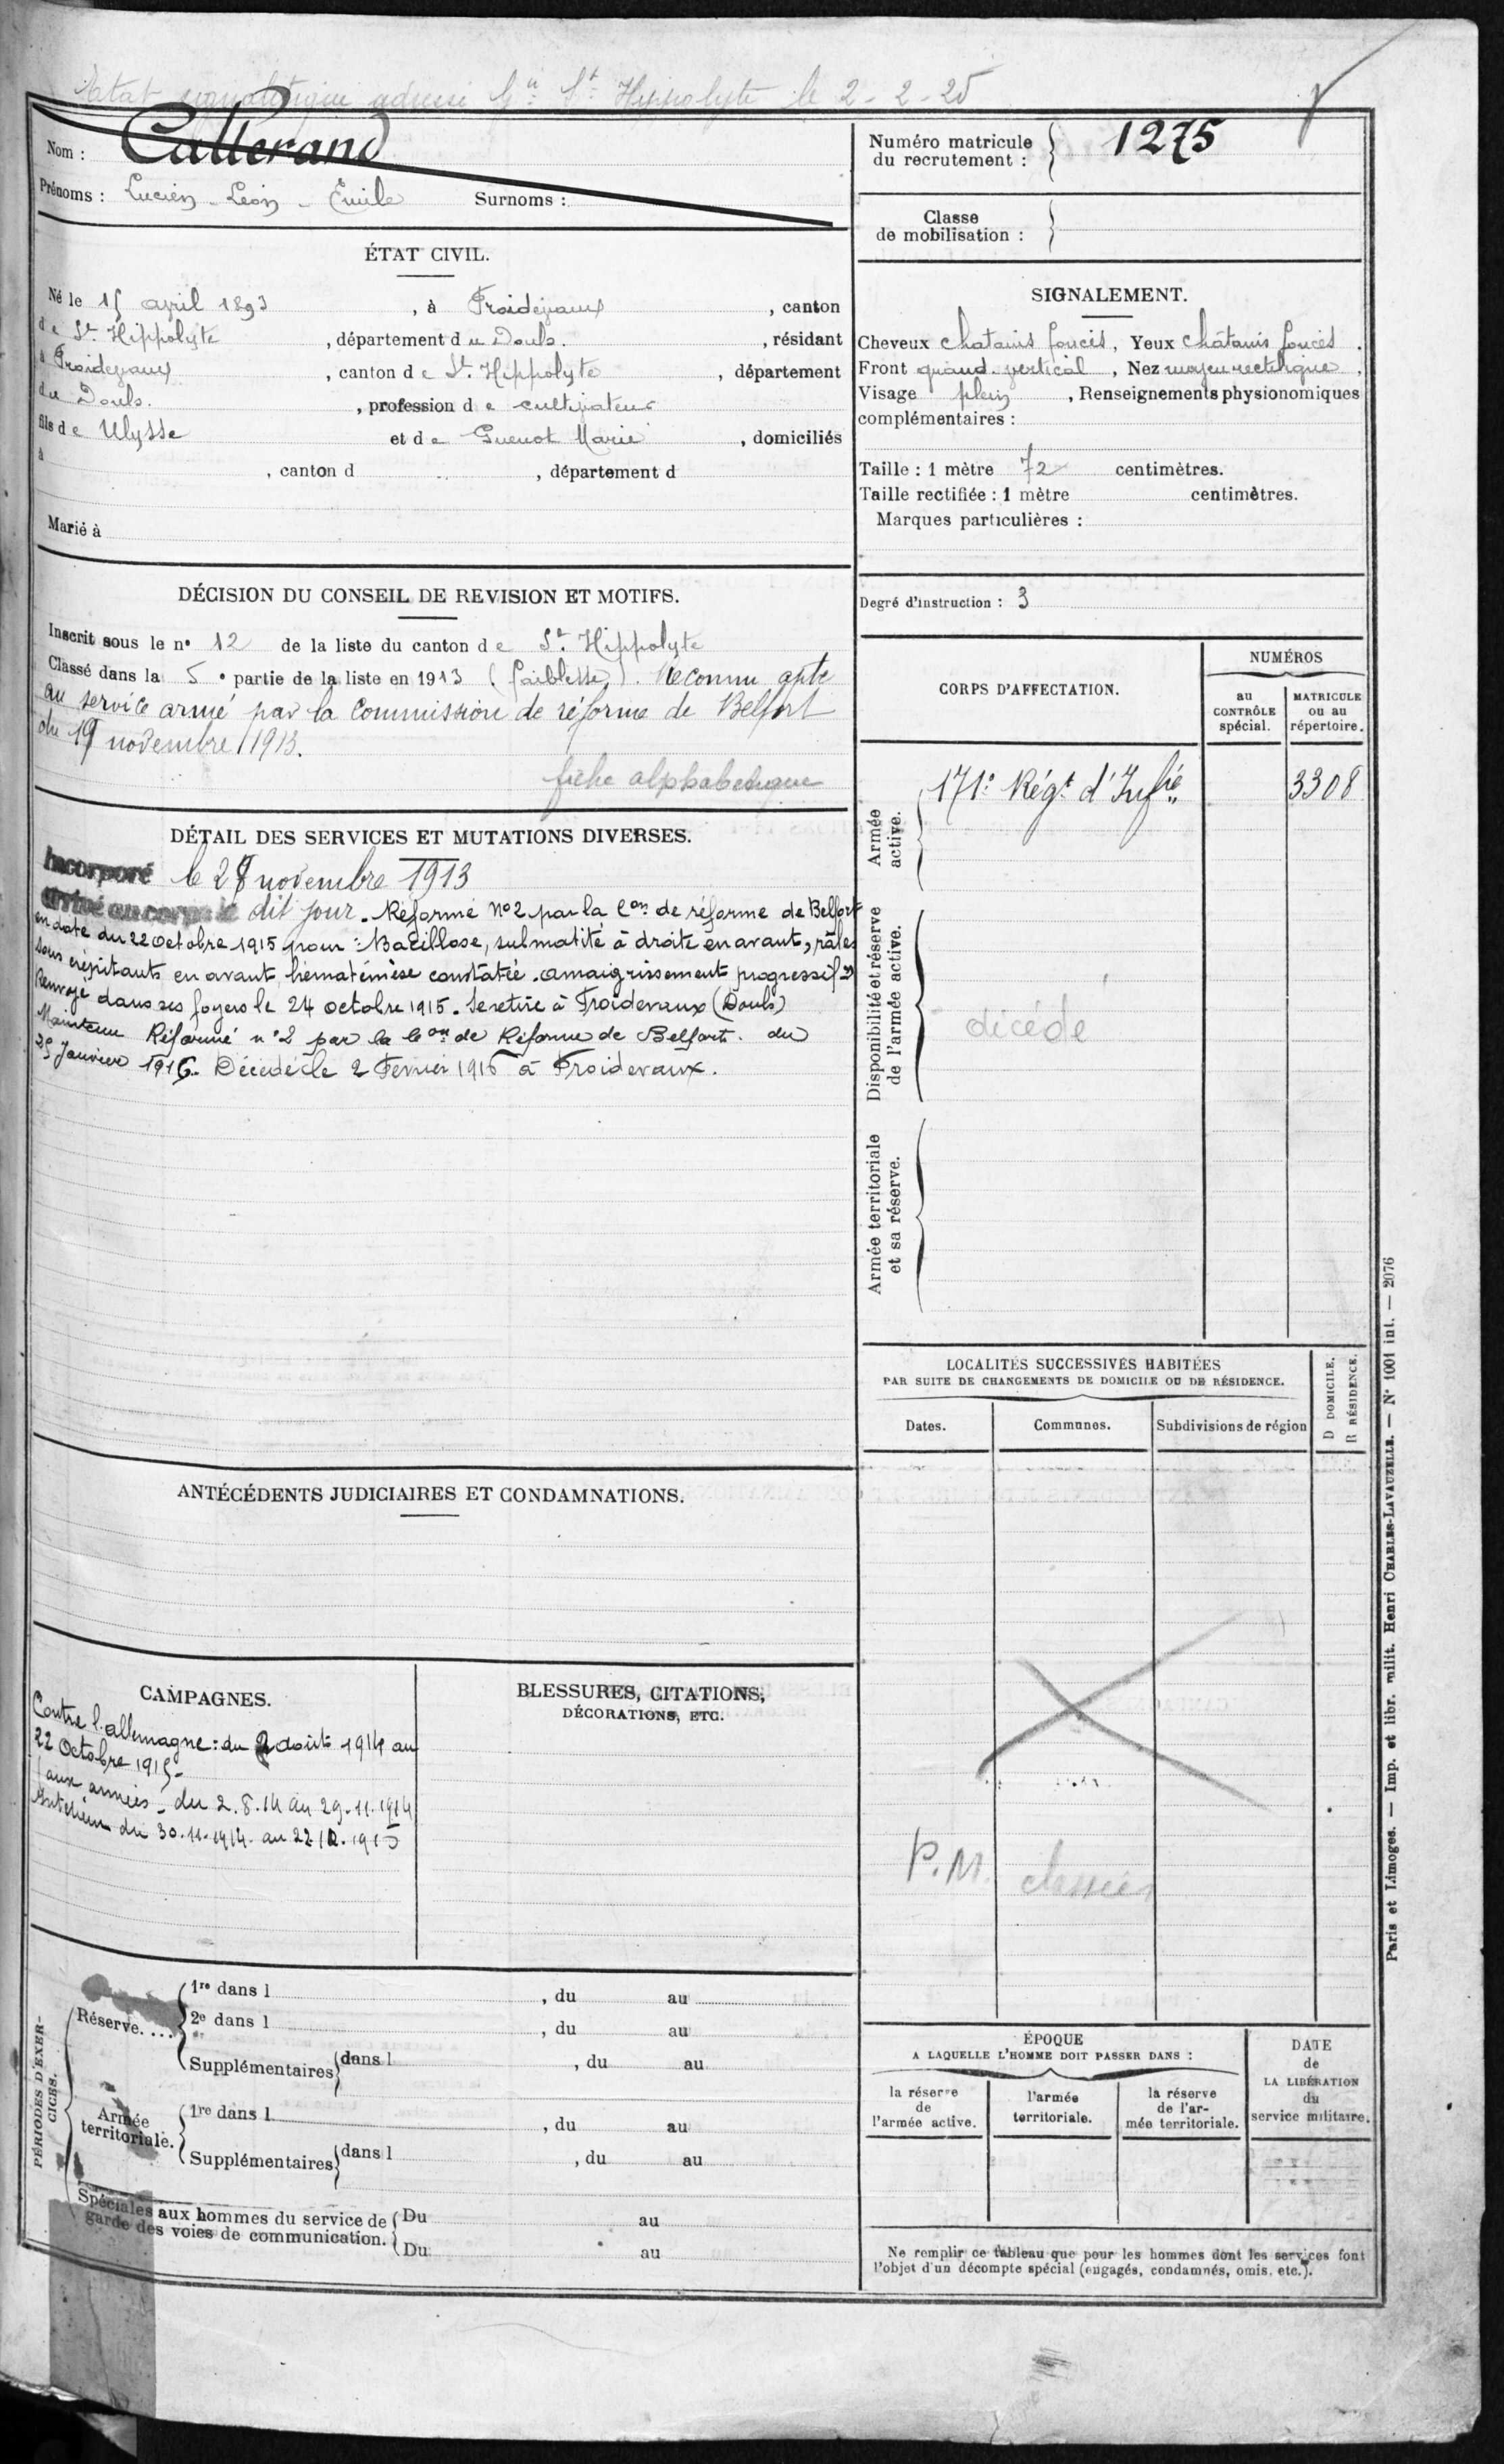 Etat signalétique adressé Gie St Hippolyte le 2-2-25
Nom : Callerand
Prénoms : Lucien - Léon - Emile Surnoms :
Numéro matricule du recrutement : 1275
Classe de mobilisation :
ÉTAT CIVIL.
Né le 15 avril 1893, à Froidevaux, canton
de St. Hippolyte, département du Doubs., résidant
à Froidevaux, canton de St. Hippolyte, département
du Doubs., profession de cultivateur
fils de Ulysse et de Guenot Marie, domiciliés
à , canton d , département d
Marié à
SIGNALEMENT.
Cheveux chatains foncés, Yeux châtains foncés.
Front grand vertical, Nez moyen rectiligne,
Visage plein, Renseignements physionomiques
complémentaires :
Taille : 1 mètre 72 centimètres.
Taille rectifiée : 1 mètre centimètres.
Marques particulières :
Degré d'instruction : 3
DÉCISION DU CONSEIL DE REVISION ET MOTIFS.
Inscrit sous le n° 12 de la liste du canton de St. Hippolyte
Classé dans la 5e partie de la liste en 1913 (faiblesse). Reconnu apte
au service armé par la Commission de réforme de Belfort
du 19 novembre 1913.
fiche alphabétique
DÉTAIL DES SERVICES ET MUTATIONS DIVERSES.
Incorporé le 28 novembre 1913
arrivé au corps le dit jour. Réformé N°2 par la Con de réforme de Belfort
en date du 22 octobre 1915 pour : Bacillose, submatité à droite en avant, râles
sous crépitants en avant, hématémèse constatée. amaigrissement progressif
Renvoyé dans ses foyers le 24 octobre 1915. Se retire à Froidevaux (Doubs)
Maintenu Réformé n°2 par la Con de Réforme de Belfort. du
25 Janvier 1916. Décédé le 2 Fevrier 1916 à Froidevaux.
CORPS D'AFFECTATION.
NUMÉROS
au CONTRÔLE spécial.
MATRICULE ou au répertoire.
Armée active.
171e Régt d'Infie
3308
Disponibilité et réserve de l'armée active.
décédé
Armée territoriale et sa réserve.
LOCALITÉS SUCCESSIVES HABITÉES
PAR SUITE DE CHANGEMENTS DE DOMICILE OU DE RÉSIDENCE.
D DOMICILE.
R RÉSIDENCE.
Dates. Communes. Subdivisions de région
P.M. classées
ANTÉCÉDENTS JUDICIAIRES ET CONDAMNATIONS.
CAMPAGNES.
Contre l'allemagne : du 2 août 1914 au
22 Octobre 1915 -
aux armées - du 2.8.14 au 29.11.1914
Intérieur du 30.11.1914 au 22.10.1915
BLESSURES, CITATIONS,
DÉCORATIONS, ETC.
PÉRIODES D'EXERCICES.
Réserve....
1re dans l , du au
2e dans l , du au
Supplémentaires dans l , du au
Armée territoriale.
1re dans l , du au
Supplémentaires dans l , du au
Spéciales aux hommes du service de garde des voies de communication.
Du au
Du au
ÉPOQUE
A LAQUELLE L'HOMME DOIT PASSER DANS :
la réserve de l'armée active.
l'armée territoriale.
la réserve de l'armée territoriale.
DATE de LA LIBÉRATION du service militaire.
Ne remplir ce tableau que pour les hommes dont les services font
l'objet d'un décompte spécial (engagés, condamnés, omis, etc.).
Paris et Limoges. — Imp. et libr. milit. Henri CHARLES-LAVAUZELLE. — N° 1001 int. — 2076